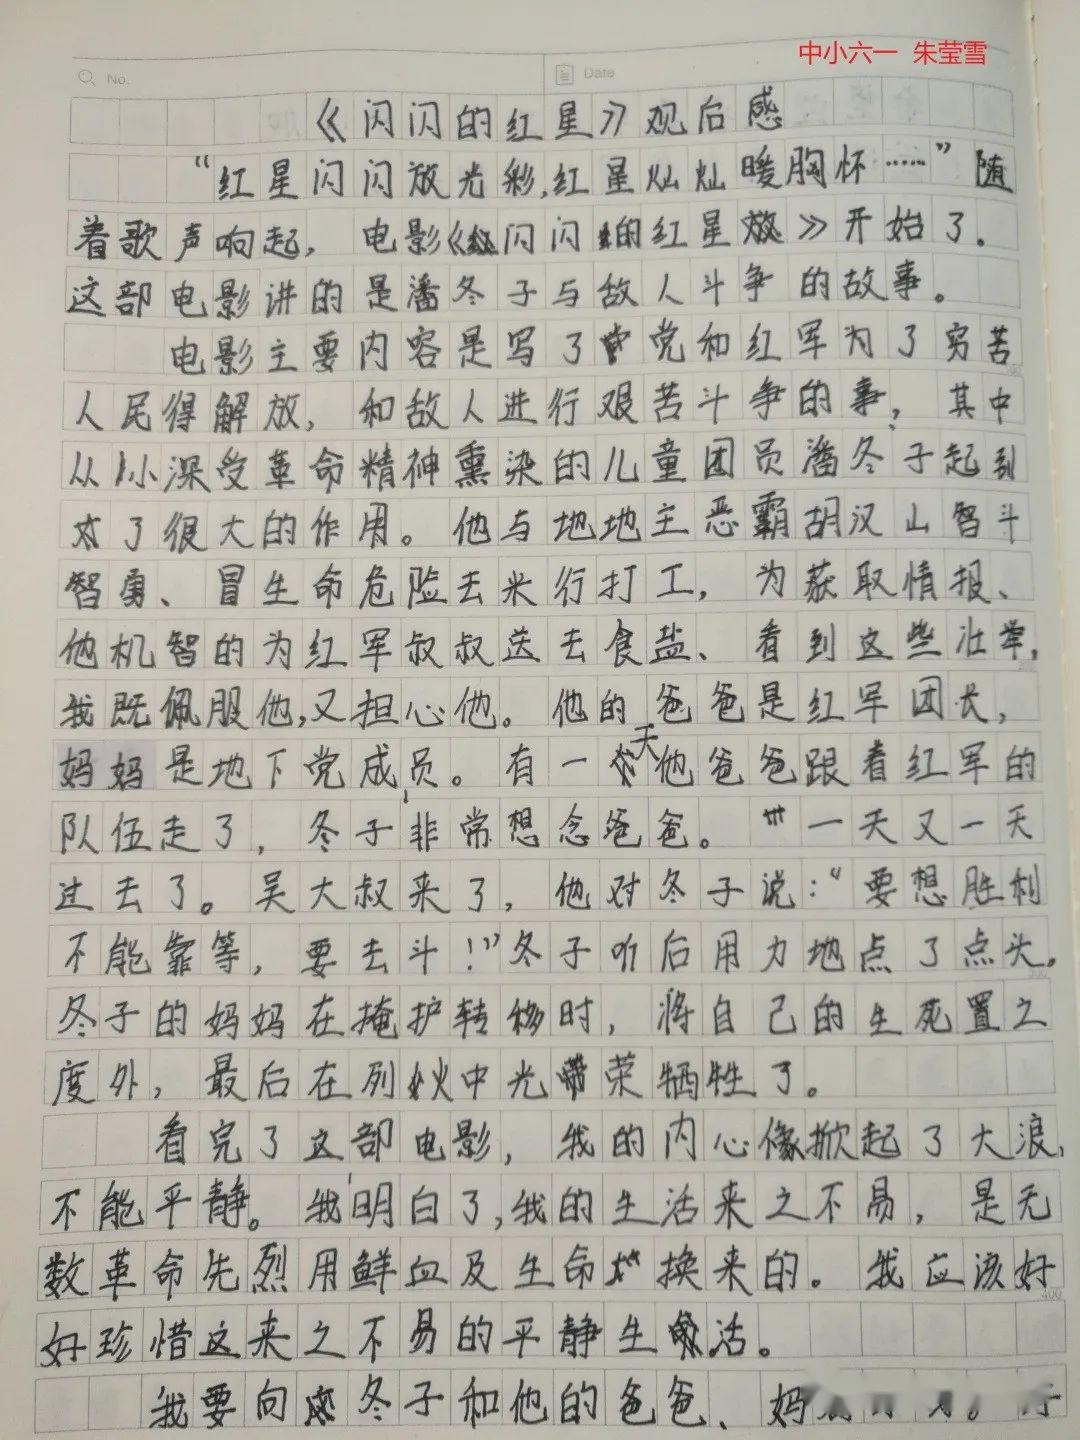 中小六一 朱莹雪
No.
Date
《闪闪的红星》观后感
“红星闪闪放光彩,红星灿灿暖胸怀……”随
着歌声响起，电影《闪闪的红星》开始了。
这部电影讲的是潘冬子与敌人斗争的故事。
电影主要内容是写了党和红军为了穷苦
人民得解放，和敌人进行艰苦斗争的事，其中
从小深受革命精神熏染的儿童团员潘冬子起到
了很大的作用。他与地地主恶霸胡汉山智斗
智勇、冒生命危险去米行打工，为获取情报、
他机智的为红军叔叔送去食盐、看到这些壮举，
我既佩服他,又担心他。他的爸爸是红军团长，
妈妈是地下党成员。有一天他爸爸跟着红军的
队伍走了，冬子非常想念爸爸。一天又一天
过去了。吴大叔来了，他对冬子说：“要想胜利
不能靠等，要去斗！”冬子听后用力地点了点头。
冬子的妈妈在掩护转移时，将自己的生死置之
度外，最后在列火中光荣牺牲了。
看完了这部电影，我的内心像掀起了大浪，
不能平静。我明白了,我的生活来之不易，是无
数革命先烈用鲜血及生命换来的。我应该好
400
好珍惜这来之不易的平静生活。
我要向冬子和他的爸爸、妈